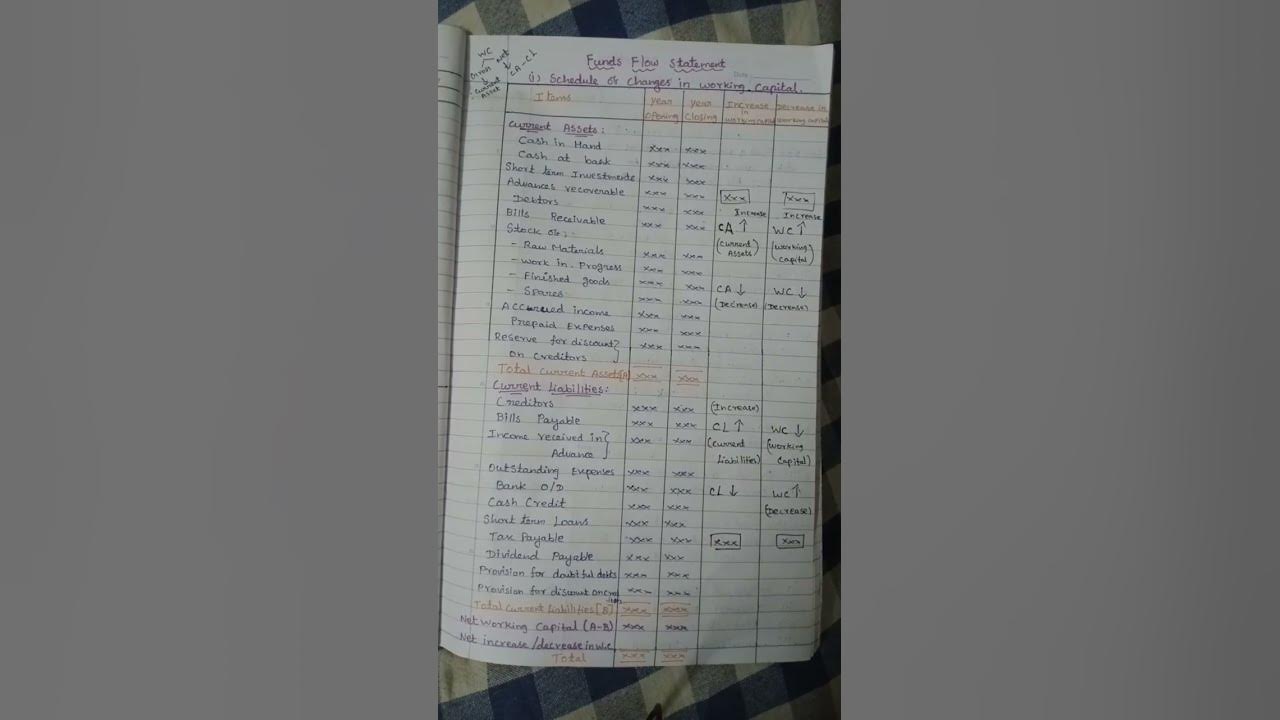 WC
net
CA-CL
Current
Asset
Funds Flow Statement
Date
(i) Schedule of changes in working capital.
Items
year Opening
year Closing
Increase in working capital
Decrease in working capital
Current Assets:
Cash in Hand xxx xxx
Cash at bank xxx xxx
Short term Investments xxx xxx
Advances recoverable xxx xxx xxx xxx
Debtors xxx xxx Increase Increase
Bills Receivable xxx xxx CA ↑ WC ↑
Stock of:- (Current Assets) (working capital)
- Raw Materials xxx xxx
- Work in. Progress xxx xxx
- Finished goods xxx xxx CA ↓ WC ↓
- Spares xxx xxx (Decrease) (Decrease)
Accrued income xxx xxx
Prepaid Expenses xxx xxx
Reserve for discount } xxx xxx
on Creditors
Total Current Assets[A] xxx xxx
Current Liabilities:
Creditors xxx xxx (Increase)
Bills Payable xxx xxx CL ↑ WC ↓
Income received in } xxx xxx (Current (working
Advance Liabilities) Capital)
Outstanding Expenses xxx xxx
Bank O/D xxx xxx CL ↓ WC ↑
Cash Credit xxx xxx (Decrease)
Short term Loans xxx xxx
Tax Payable xxx xxx xxx xxx
Dividend Payable xxx xxx
Provision for doubtful debts xxx xxx
Provision for discount on xxx xxx
Total Current Liabilities [B] xxx xxx
Net Working Capital (A-B) xxx xxx
Net increase/decrease in W.C
Total xxx xxx